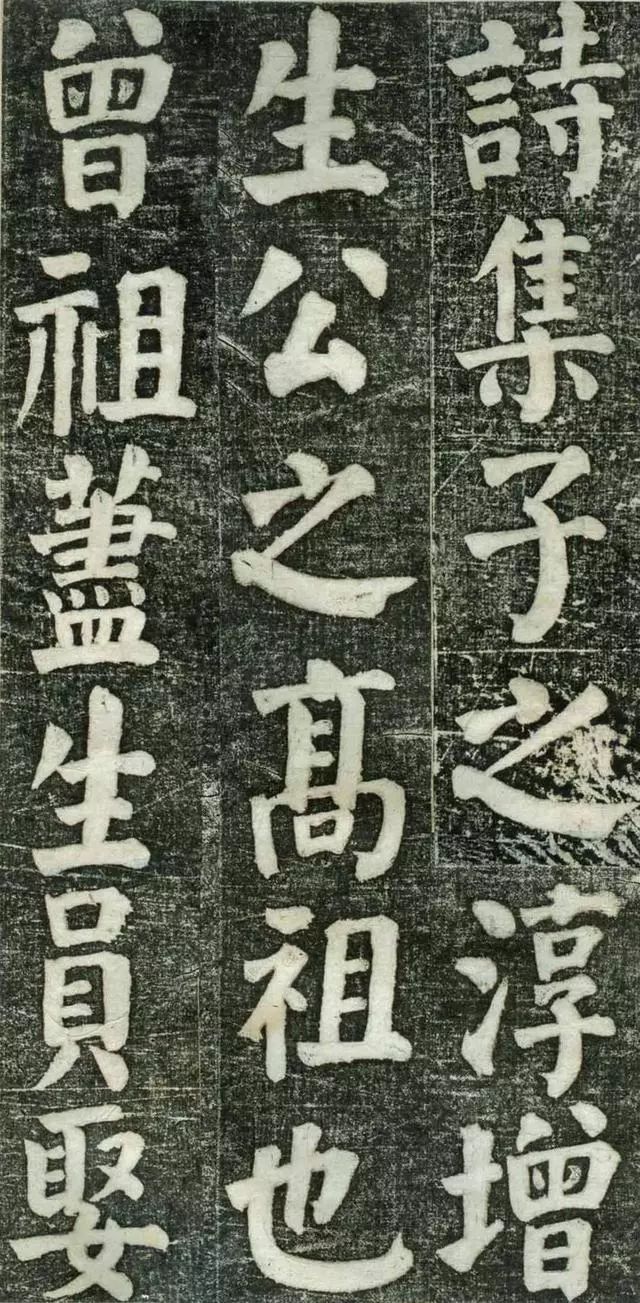 詩集子之淳增
生公之髙祖也
曾祖藎生員娶